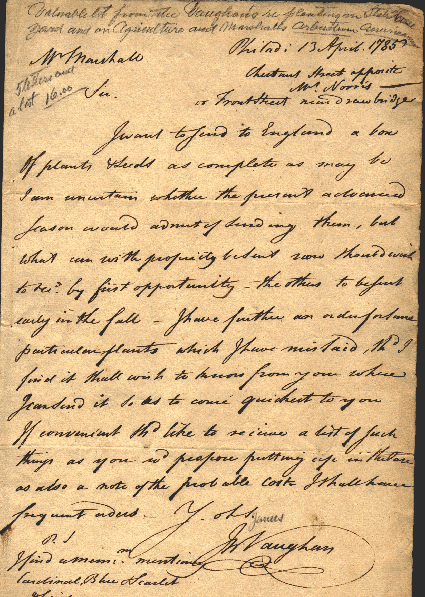 Valuable lot from the Vaughans re planting in State House
Yard and on Agriculture and Marshalls Arbustum Americanum
Philad: 13 April 1785
Mr Marshall
Chestnut Street opposite
Mr Norris
or Front Street near drawbridge
5 letters and
a list 16.00
Sir.
I want to send to England a box
Of plants & seeds as complete as may be
I am uncertain whether the present advanced
season would admit of sending them, but
what can with propriety be sent now should wish
to recr. by first opportunity - the others to be sent
early in the fall - I have further an order for some
particular plants which I have mislaid, shd I
find it shall wish to know from you where
I can send it so as to come quickest to you
If convenient shd like to receive a list of such
things as you wd propose putting up in the box
as also a note of the probable cost I shall have
frequent orders. Y. obs
James
Jn Vaughan
P.S
I find a memm. mentions
Cardinal, Blue & Scarlet